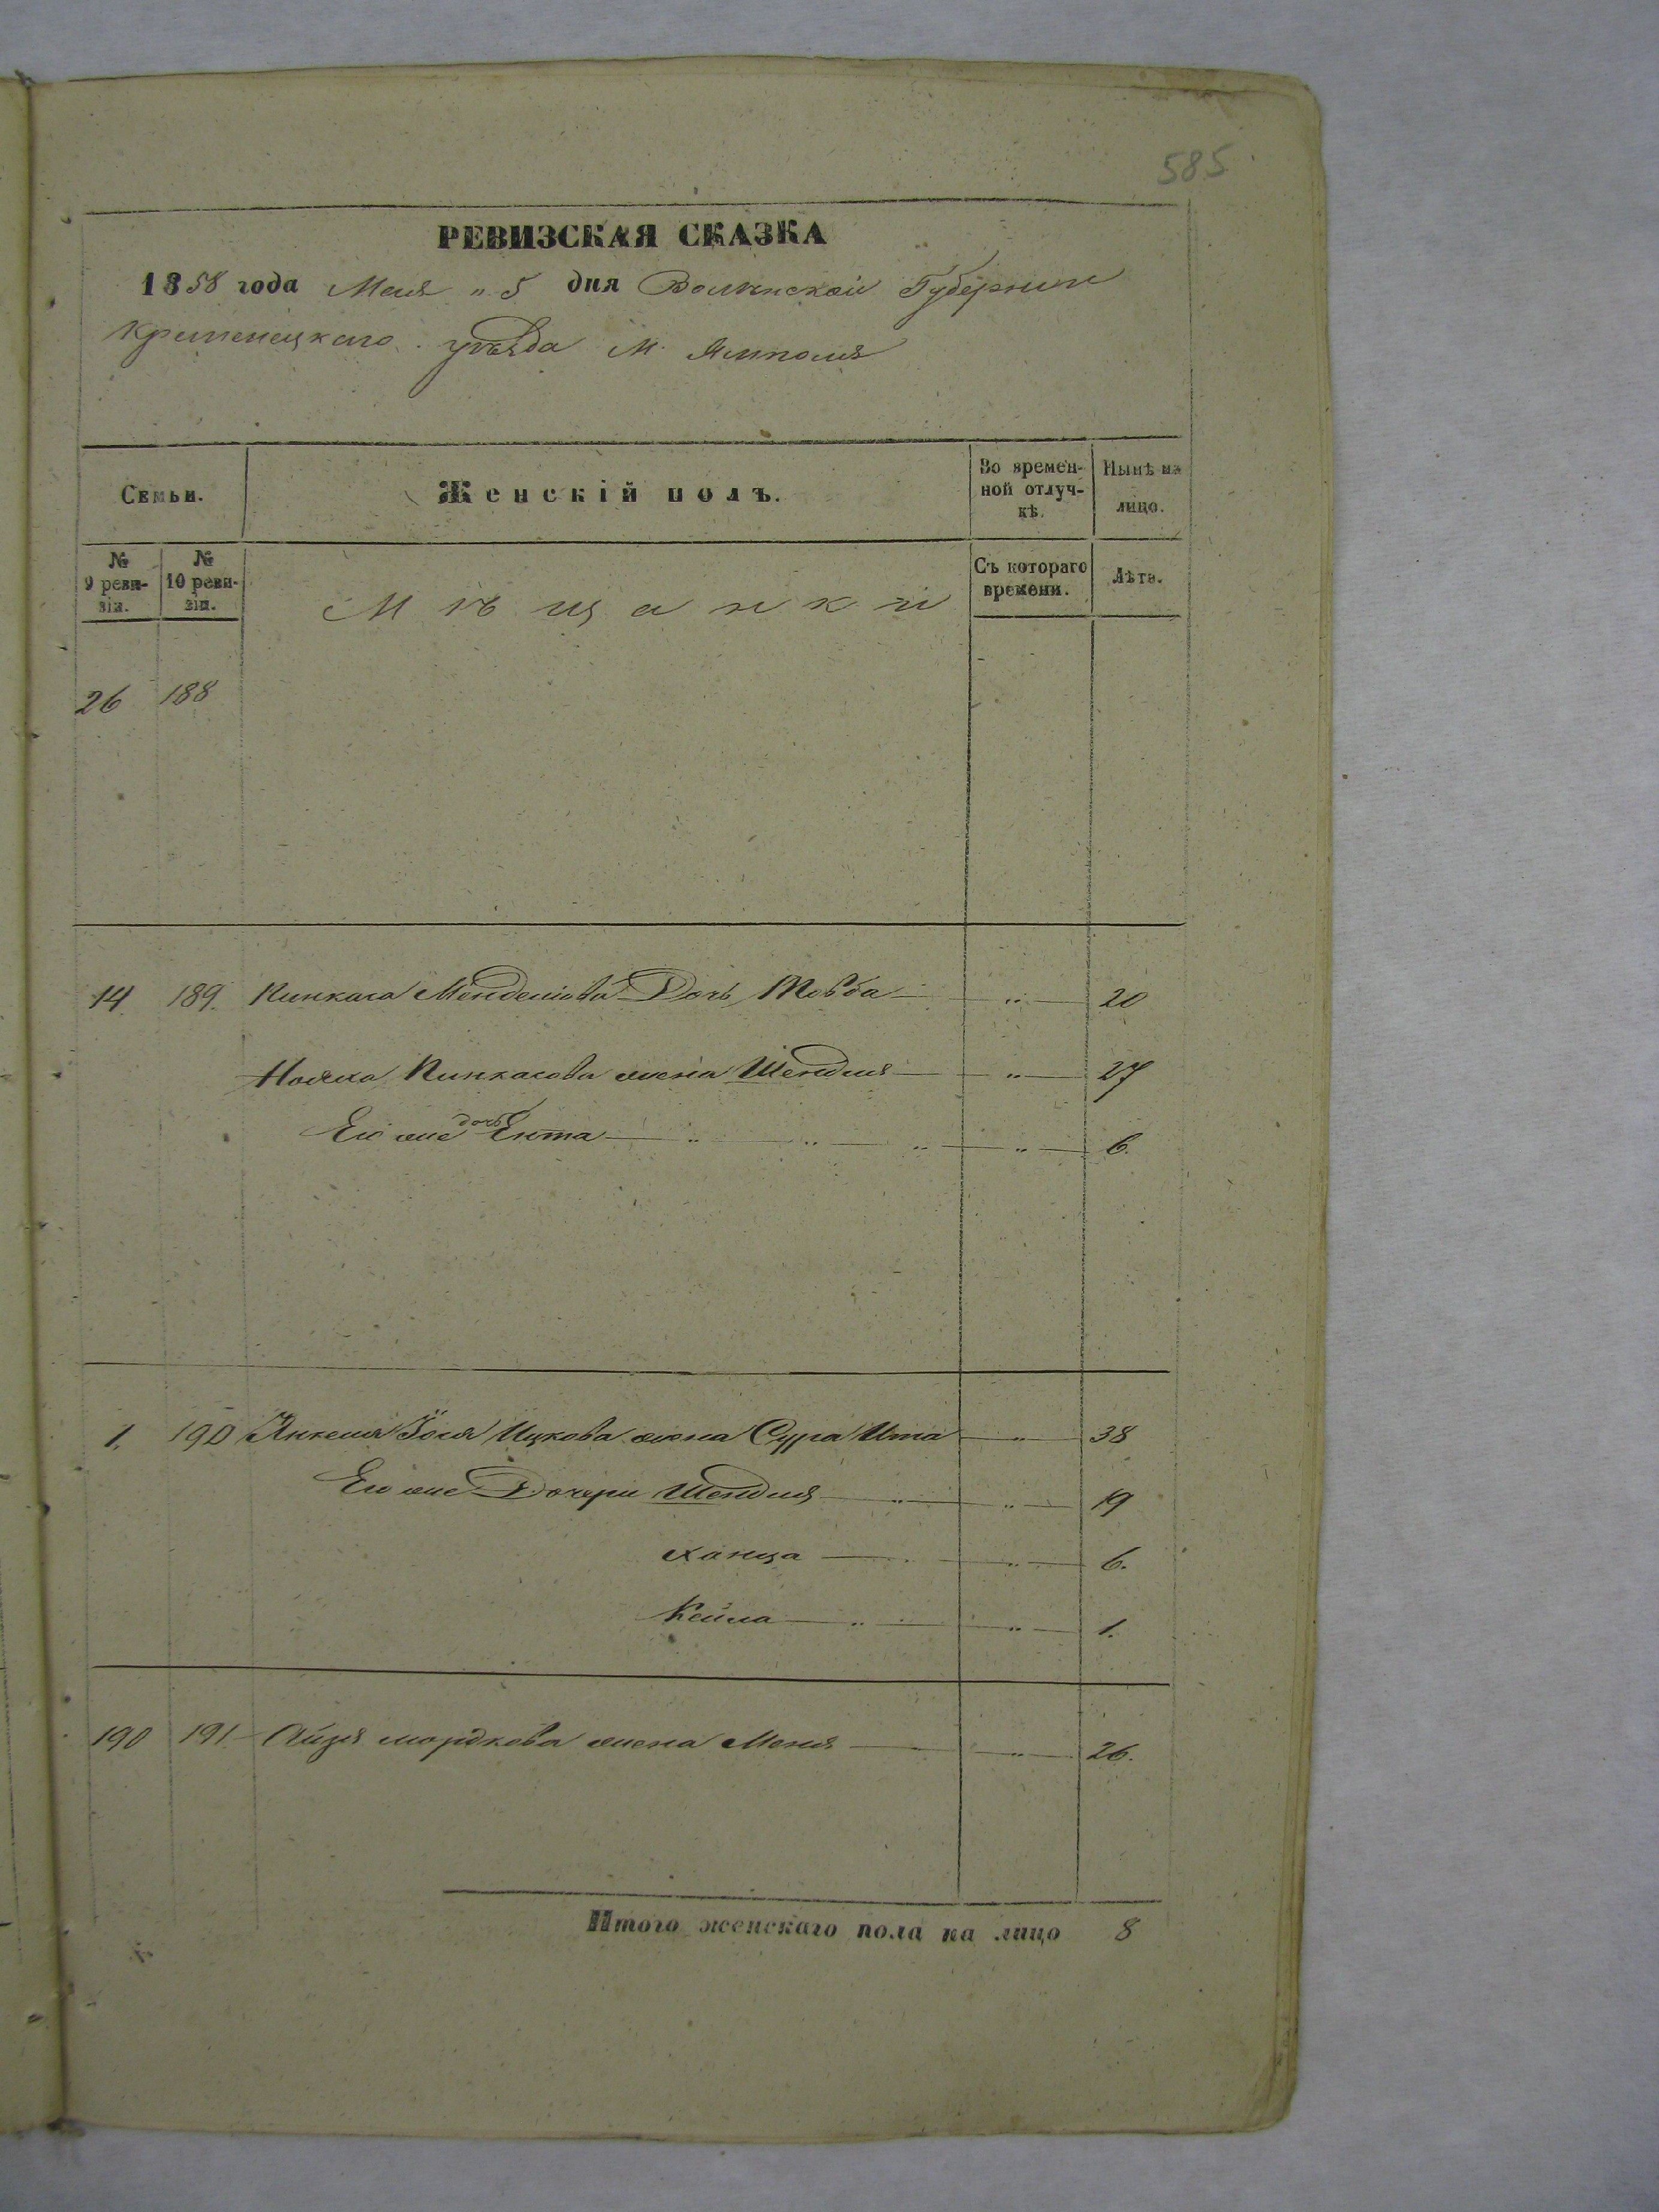 585
РЕВИЗСКАЯ СКАЗКА
1858 года Мая „ 5 дня Волынской Губернии
Кременецкаго уѣзда М. Ямполя
Семьи.
Женскій полъ.
Во времен-
ной отлуч-
кѣ.
Нынѣ на
лицо.
№
9 реви-
зіи.
№
10 реви-
зіи.
Мѣщанки
Съ котораго
времени.
Лѣта.
26 188
14 189. Пинкаса Менделіова Дочь Товба „ 20
Пинкасова жена Шендля „ 27
Его же дочь Ента „ 6.
1. 190 Янкеля Іося Ицкова жена Сура Ита „ 38
Его же Дочери Шендля „ 19
Ханца „ 6.
Кейла „ 1.
190 191 Айзя мордкова жена Меня „ 26.
Итого женскаго пола на лицо 8